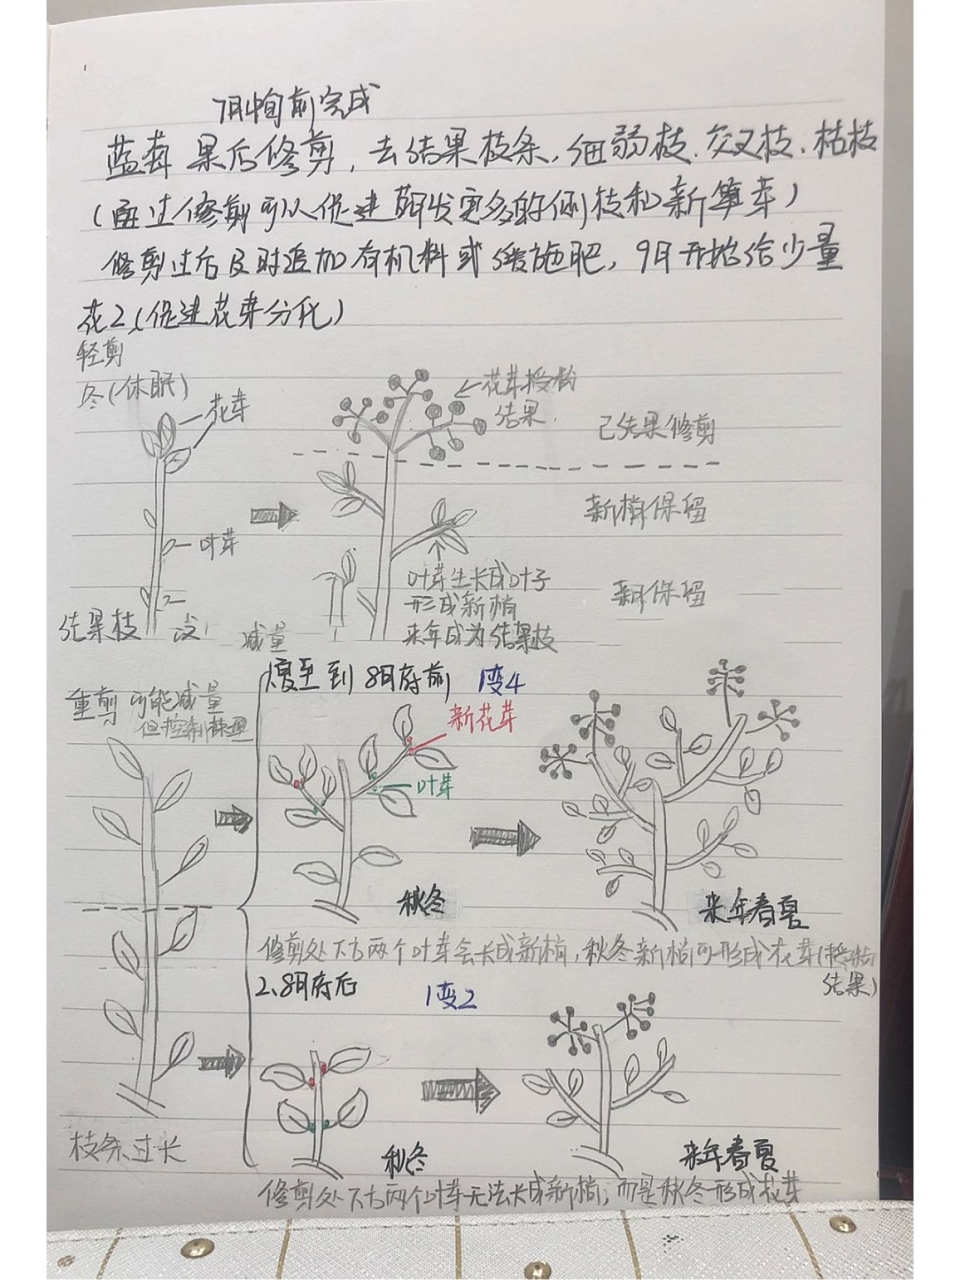 7月中旬前完成
蓝莓 果后修剪，去结果枝条、细弱枝、交叉枝、枯枝
(通过修剪可以促进萌发更多的侧枝和新笋芽)
修剪过后及时追加有机料或缓施肥，9月开始给少量
花2(促进花芽分化)
轻剪
冬(休眠)
花芽
叶芽
结果枝
减量
花芽授粉
结果
已结果修剪
新梢保留
叶芽生长成叶子
形成新梢
来年成为结果枝
保留
重剪 可能减量
但控制株型
枝条过长
夏至到8月底前 1变4
新花芽
叶芽
秋冬
来年春夏
修剪处下方两个叶芽会长成新梢，秋冬新梢可形成花芽(
结果)
2、8月底后
1变2
秋冬
来年春夏
修剪处下方两个叶芽无法长成新梢，而是秋冬形成花芽